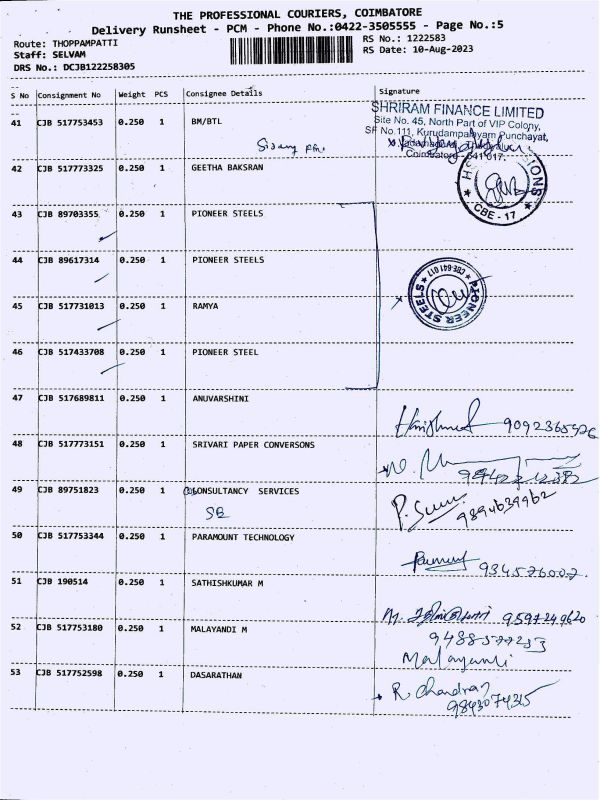 THE PROFESSIONAL COURIERS, COIMBATORE
Delivery Runsheet - PCM - Phone No.:0422-3505555 - Page No.:5
Route: THOPPAMPATTI
RS No.: 1222583
Staff: SELVAM
RS Date: 10-Aug-2023
DRS No.: DCJB122258305
S No Consignment No Weight PCS Consignee Details Signature
41 CJB 517753453 0.250 1 BM/BTL
SHRIRAM FINANCE LIMITED
Site No. 45, North Part of VIP Colony,
SF No.111, Kurudampalayam Punchayat,
Coimbatore - 641 017.
42 CJB 517773325 0.250 1 GEETHA BAKSRAN
CBE - 17
43 CJB 89703355 0.250 1 PIONEER STEELS
44 CJB 89617314 0.250 1 PIONEER STEELS
PIONEER STEELS
CBE-641 017
45 CJB 517731013 0.250 1 RAMYA
46 CJB 517433708 0.250 1 PIONEER STEEL
47 CJB 517689811 0.250 1 ANUVARSHINI
48 CJB 517773151 0.250 1 SRIVARI PAPER CONVERSONS
49 CJB 89751823 0.250 1 CONSULTANCY SERVICES
SB
9894639962
50 CJB 517753344 0.250 1 PARAMOUNT TECHNOLOGY
51 CJB 190514 0.250 1 SATHISHKUMAR M
9597249620
52 CJB 517753180 0.250 1 MALAYANDI M
53 CJB 517752598 0.250 1 DASARATHAN
R. Chandran